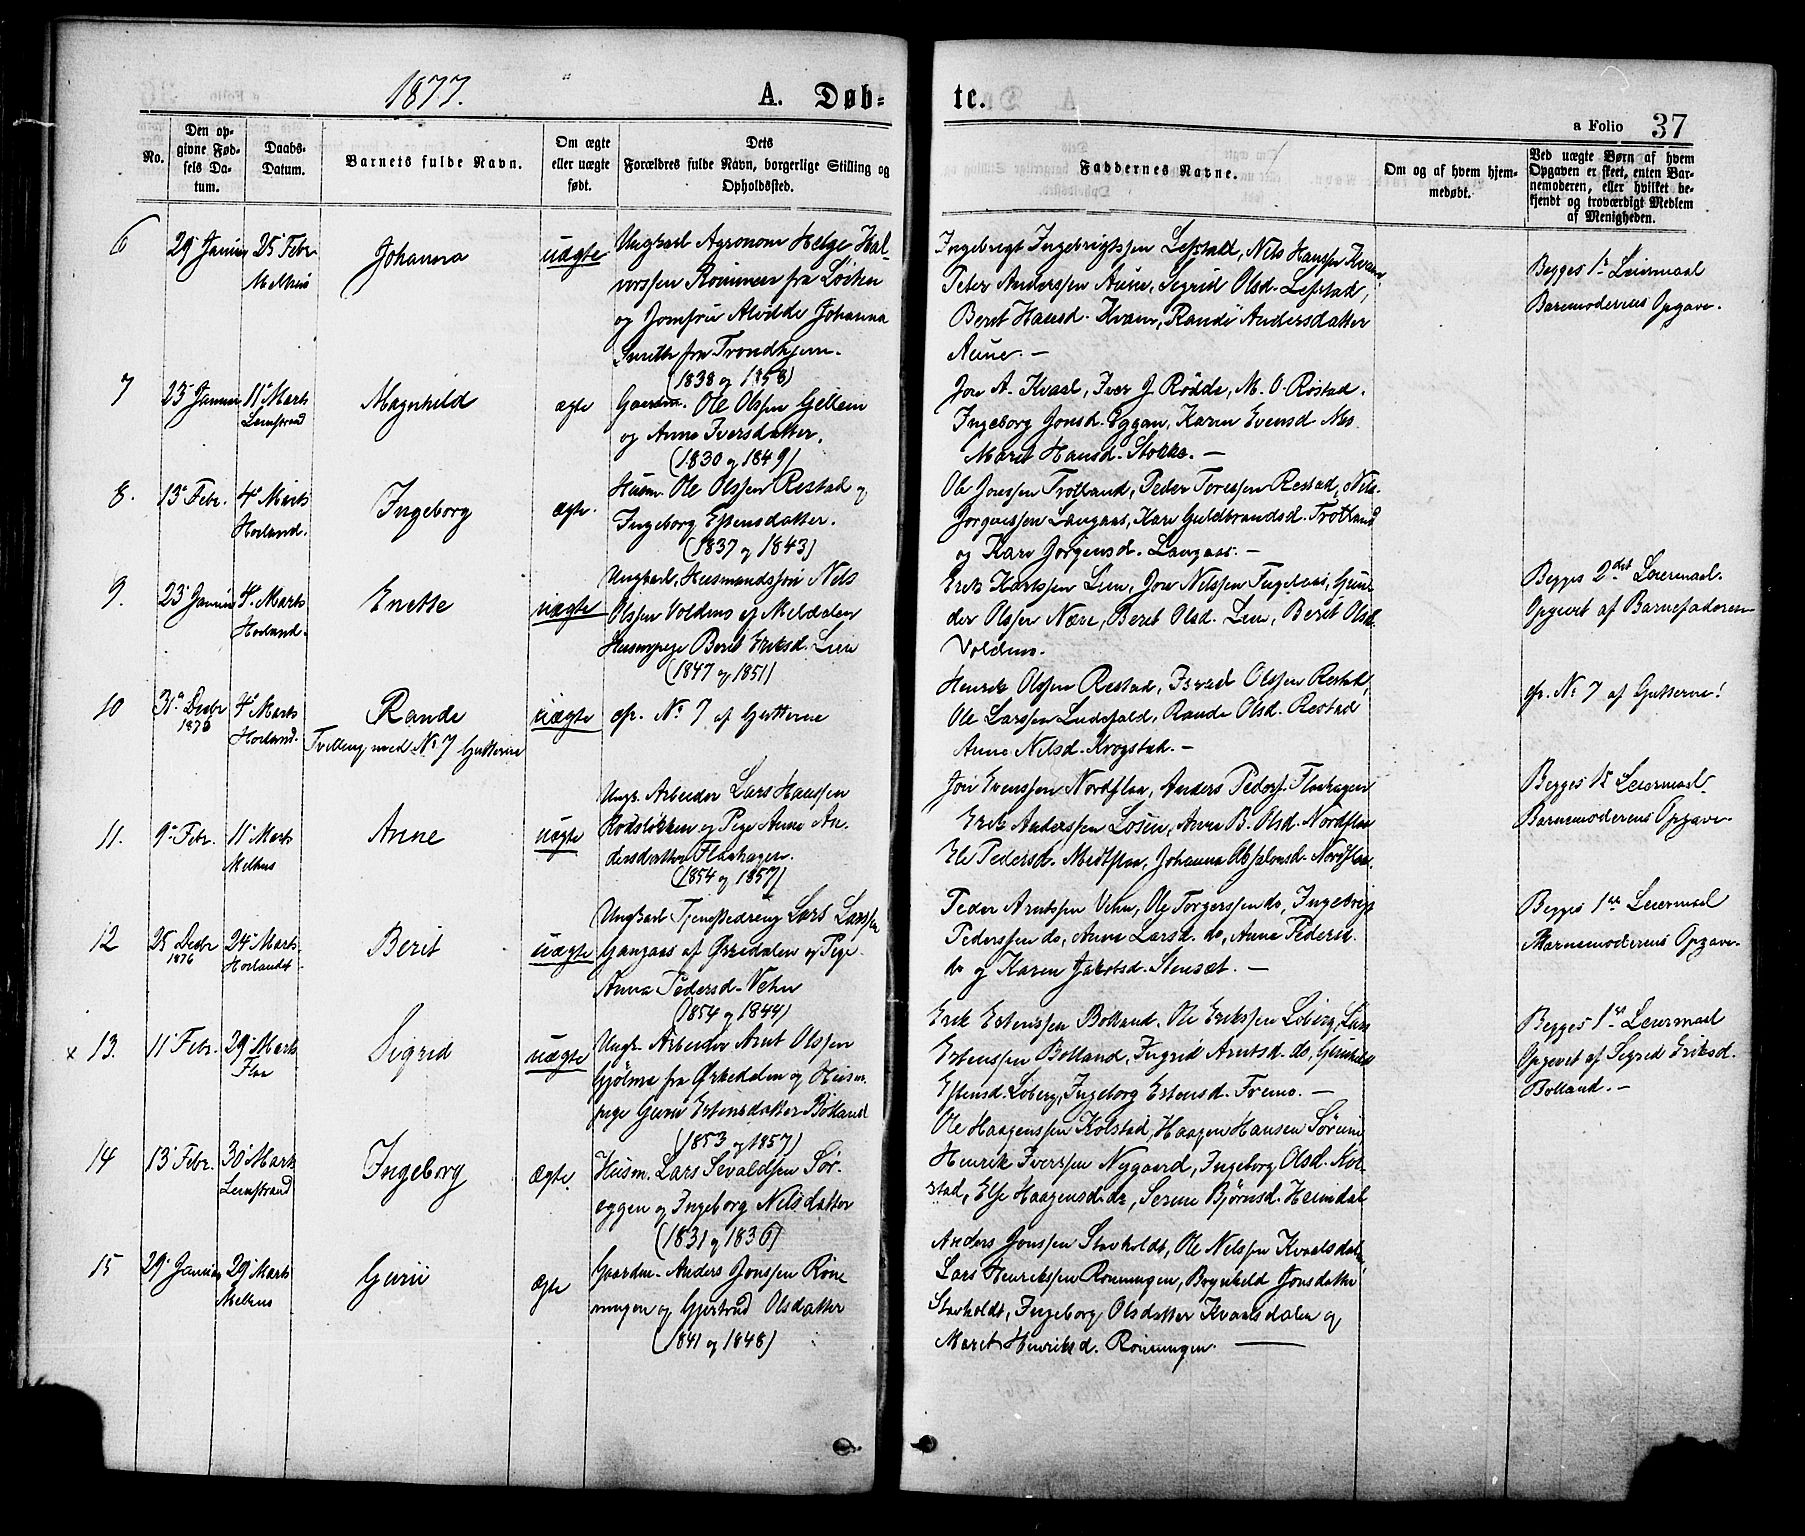 1877.
A. Døb-
te.
a Folio 37
No.
Den op-
givne Fød-
sels Da-
tum.
Daabs-
Datum.
Barnets fulde Navn.
Om ægte
eller uægte
født.
Dets
Forældres fulde Navn, borgerlige Stilling og
Opholdssted.
Faddernes Navne.
Om og af hvem hjem-
medøbt.
Ved uægte Børn af hvem
Opgaven er skeet, enten Bar-
nemoderen, eller hvilket be-
kjendt og troværdigt Medlem
af Menigheden.
6
29 Januar
25 Febr
Melhus
Johanna
uægte
Ungkarl Agronom Helge Hal-
vorssen Rømmen fra Løcken
og Jomfru Alvilde Johanna
Smith fra Trondhjem.
(1838 og 1858)
Ingebrigt Ingebrigtssen Lefstad, Nils Hanssen Kvam
Peter Anderssen Aune, Sigrid Olsd. Lefstad,
Berit Hansd. Kvam, Randi Andersdatter
Aune. —
Begges 1ste Leiermaal
Barnemoderens Opgave.
7
23 Januar
11 Marts
Leinstrand
Magnhild
ægte
Gaardm. Ole Olssen Gellein
og Anne Iversdatter.
(1830 og 1849)
Jon A. Kvaal, Iver J. Rødde, M. O. Røstad.
Ingeborg Jonsd. Eggan, Karen Evensd
Marit Hansd. Stokke. —
8.
13 Febr.
4 Marts
Horland.
Ingeborg
ægte.
Husm. Ole Olssen Restad og
Ingeborg Estensdatter.
(1837 og 1843)
Ole Jonssen Trotland, Peder Toressen Restad, Nils
Jørgenssen Langaas, Kari Guldbrandsd. Trotland
og Kari Jørgensd. Langaas. —
9.
23 Januar
4 Marts
Horland.
Enette
uægte
Ungkarl, Husmandssøn Nils
Olssen Voldens af Meldalen
Husmpige Berit Eriksd. Lien
(1847 og 1851)
Erik Larssen Lien, Jon Nilssen
der Olssen Nære, Berit Olsd. Lien, Berit Olsd.
Voldens.
Begges 2det Leiermaal.
Opgivet af Barnefaderen
10
31 Decbr
1876
4 Marts
Horland.
Rande
Tvilling med No 7 Gutterne
uægte
cfr. No 7 af Gutterne
Henrik Olssen Restad, Israel Olssen Restad,
Ole Larssen Ludsfald, Rande Olsd. Restad
Anne Nilsd. Krogstad. —
cfr. No 7 af Gutterne!
11.
9 Febr.
11 Marts
Melhus
Anne
uægte
Ungk. Arbeider Lars Hanssen
Rodsløkken og Pige Anne An-
dersdatter Flaahagen.
(1854 og 1857)
Jon Evenssen Nordflaa, Anders Peders. Flaahagen
Erik Anderssen Losen, Anne B. Olsd. Nordflaa
Eli Pedersd. Midtflaa, Johanna Absalonsd. Nordflaa.
Begges 1ste Leiermaal.
Barnemoderens Opgave.
12
25 Decbr
1876
24 Marts
Horlandt.
Berit
uægte
Ungkarl Tjenestedreng Lars Larssen
Gangaas af Ørkedalen og Pige
Anna Pedersd. Vehn
(1854 og 1844)
Peder Arntssen Vehn, Ole Torgerssen do, Ingebrigt
Pederssen do, Anne Larsd. do, Anne Pedersd.
do og Karen Jakobsd. Stenset. —
Begges 1ste Leiermaal
Barnemoderens Opgave.
x 13.
11 Febr.
29 Marts
Flaa
Sigrid
uægte
Ungk. Arbeider Arnt Olssen
Gjølme fra Ørkedalen og Husm.
pige Guru Estensdatter Bolland
(1853 og 1857)
Erik Estenssen Bolland. Ole Erikssen Loberg, Lars
Estenssen Bolland, Ingrid Arntsd. do, Gunhild
Estensd. Loberg, Ingeborg Estensd. Fremo. —
Begges 1ste Leiermaal
Opgivet af Sigrid Eriksd.
Bolland. —
14
13 Febr.
30 Marts
Leinstrand
Ingeborg
ægte.
Husm. Lars Sevaldsen Sør-
eggen og Ingeborg Nilsdatter
(1831 og 1836)
Ole Haagenssen Kolstad, Haagen Hansen Sørum
Henrik Iverssen Nygaard, Ingeborg Olsd. Kol-
stad, Else Haagensd. do, Serine Bjørnsd. Heimdal
15
29 Januar
29 Marts
Melhus
Guru
ægte
Gaardm. Anders Jonssen Røn-
ningen og Gjertrud Olsdatter
(1841 og 1848)
Anders Jonssen Stavholdt, Ole Nilssen Kvaalsdalen
Lars Henrikssen Rønningen, Brynhild Jonsdatter
Stavholdt, Ingeborg Olsdatter Kvaalsdalen og
Marit Henriksd. Rønningen. —